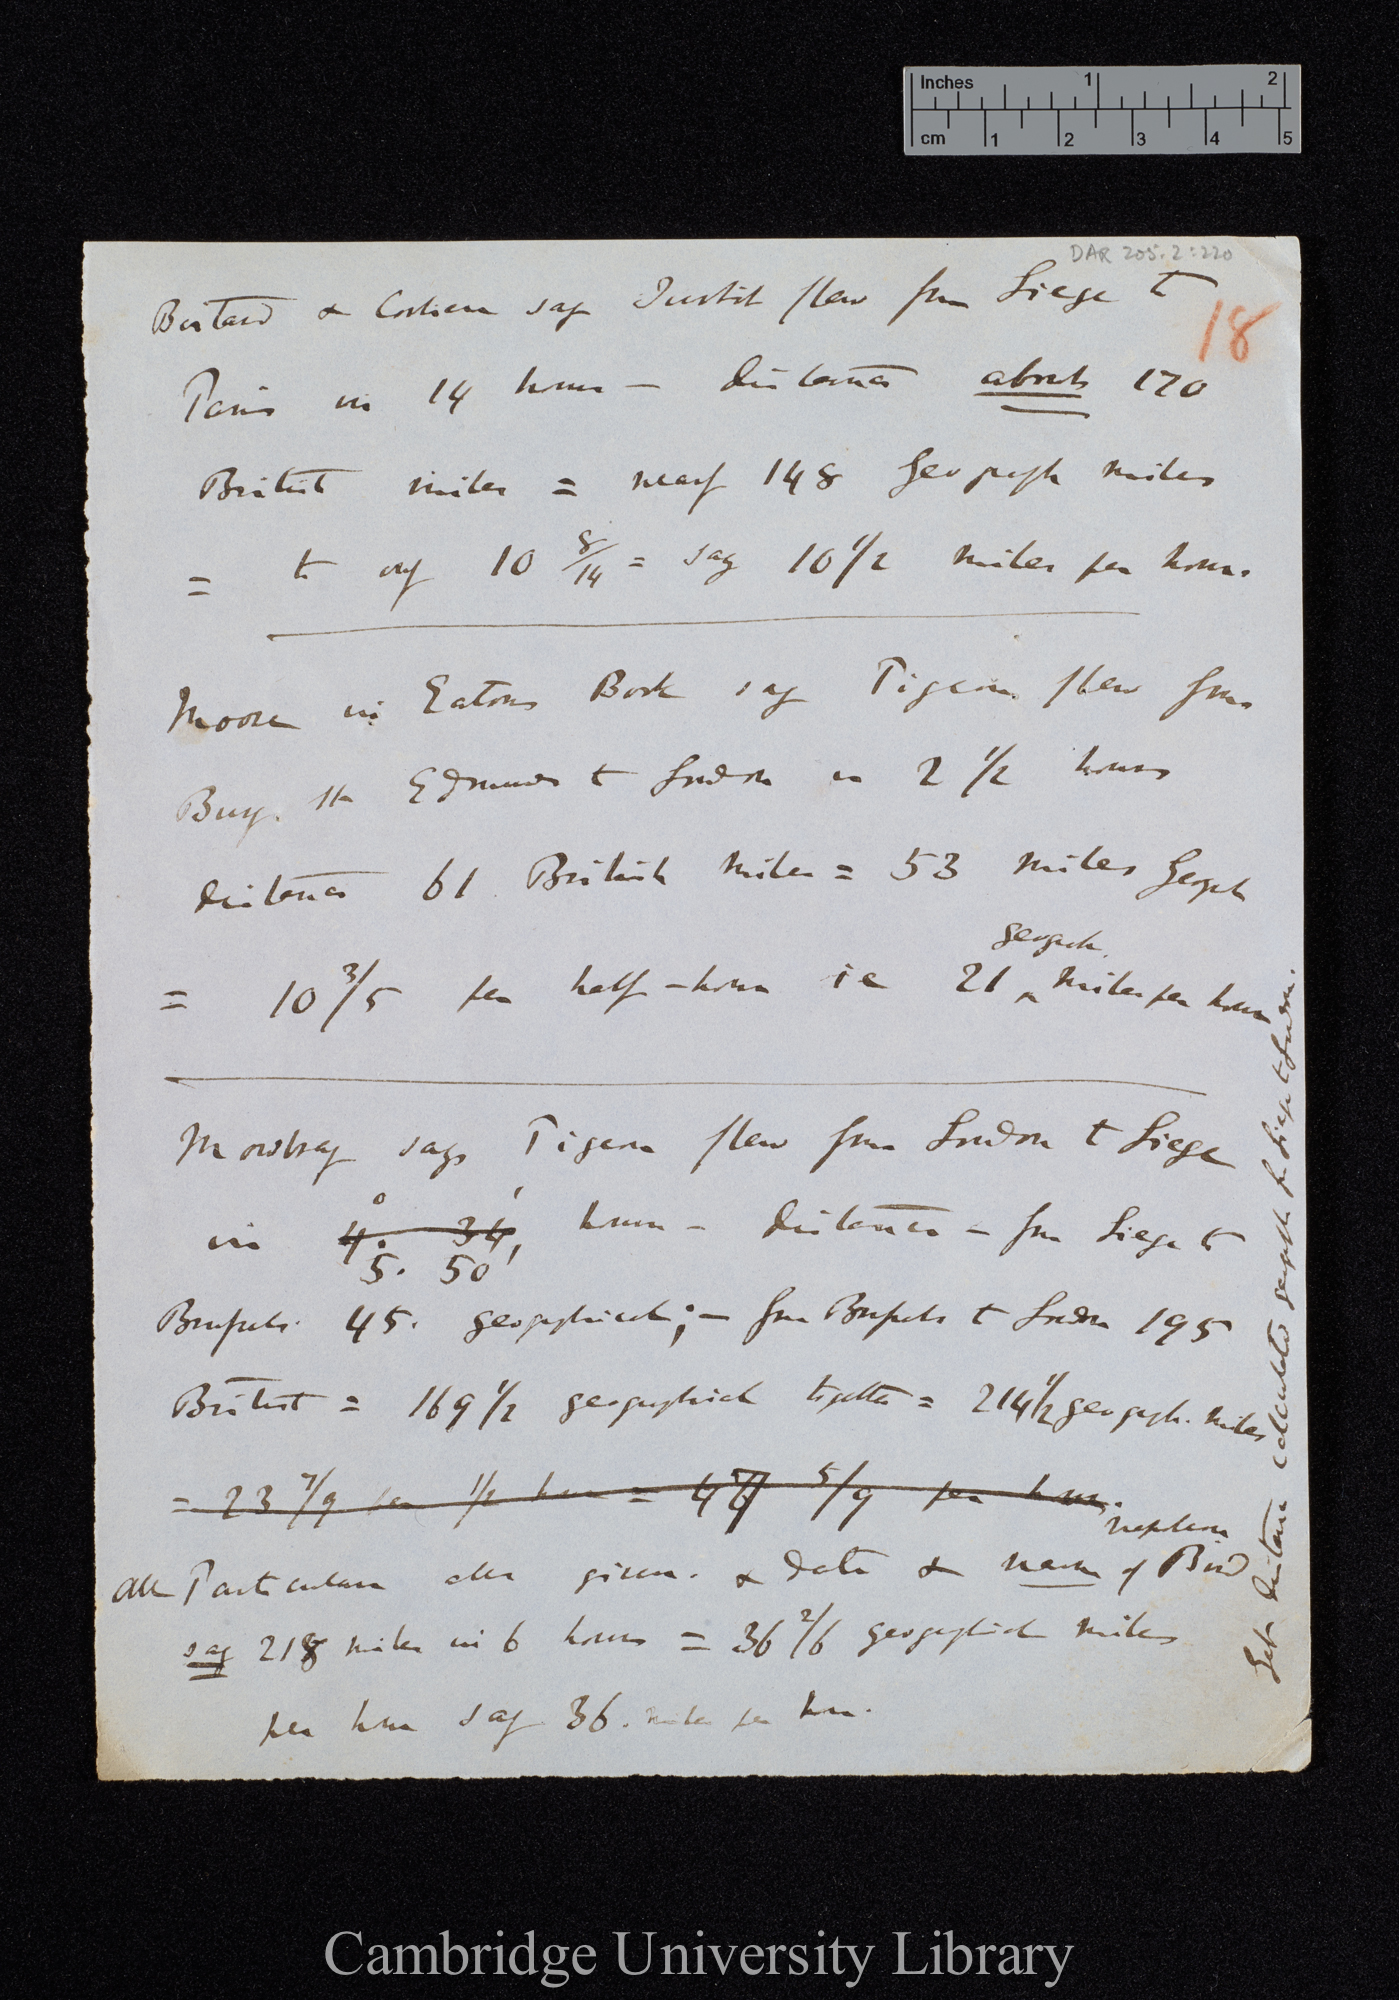 Inches 1 2
cm 1 2 3 4 5
DAR 205.2:220
18
Boitard & Corbié say Turbit flew from Liege to
Paris in 14 hours — distance about 170
British miles = nearly 148 Geograph miles
= to only 10 8/14 = say 10 1/2 miles per hour.
Moore in Eatons Book say Pigeon flew from
Bury. St Edmunds to London in 2 1/2 hours
distance 61 British miles = 53 miles Geograph
geograph.
= 10 3/5 per half-hour ie 21 ^ miles per hour
Mowbray says Pigeon flew from London to Liege
in 4°. 34', hours — distance — from Liege to
5. 50'
Brussels. 45. geographical; — from Brussels to London 195
British = 169 1/2 geographical together = 214 1/2 geograph. miles
= 23 7/9 per 1/2 hour = 47 5/9 per hour.
Napoleon
All Particulars also given. & date & name of Bird
say 218 miles in 6 hours = 36 2/6 geographical miles
per hour say 36. miles per hour.
Get distance calculated geograph from Liege to London.
Cambridge University Library